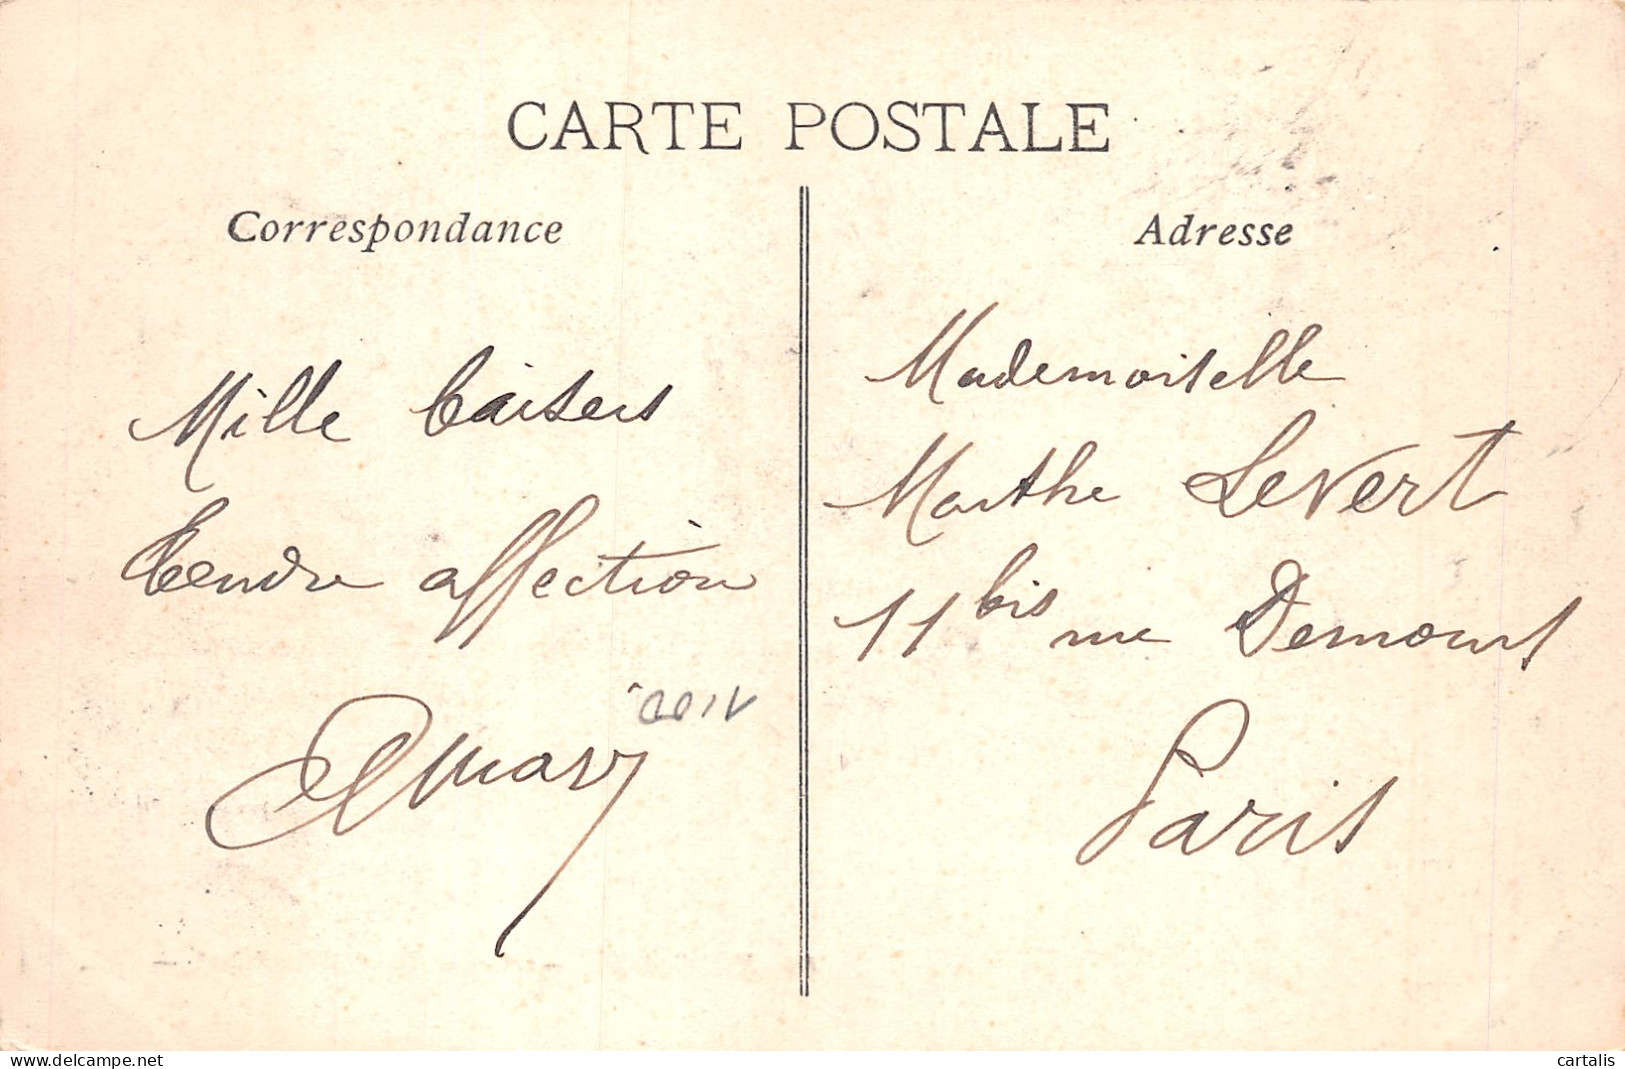 CARTE POSTALE
Correspondance
Mille baisers
tendre affection
Adresse
Mademoiselle
Marthe Levert
11 bis rue Demours
Paris
www.delcampe.net
cartalis